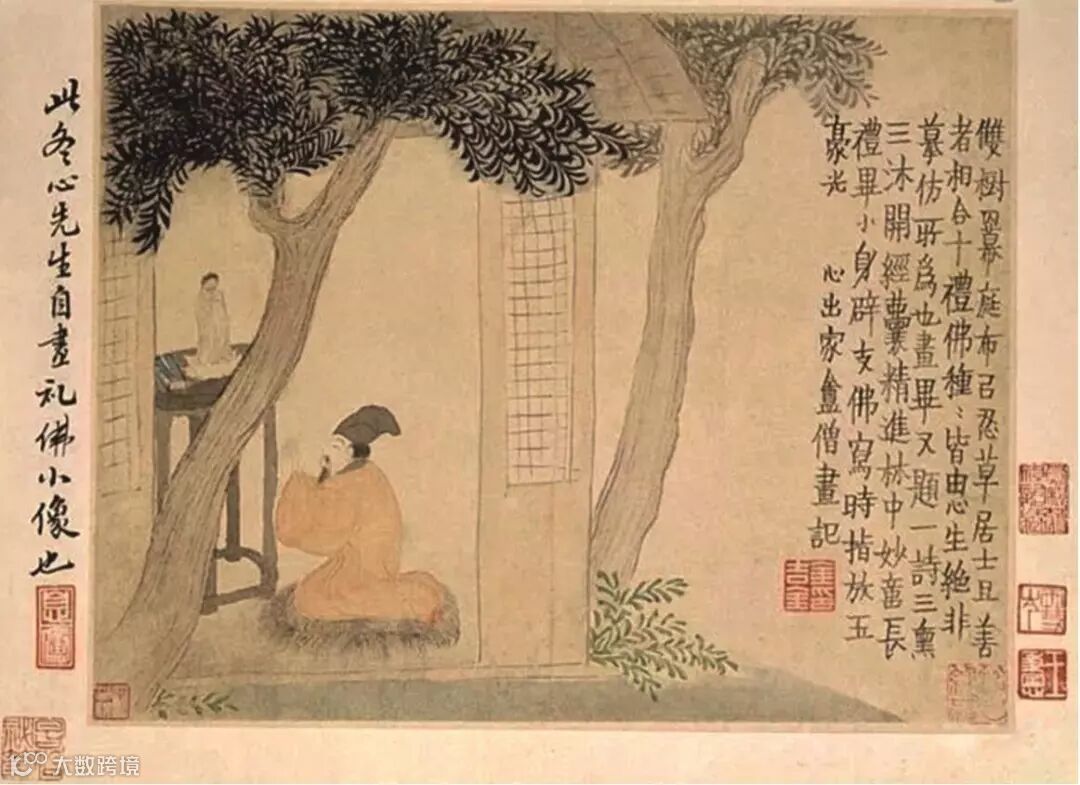 雙樹冪庭布㠯忍草居士且善
者相合十禮佛種〻皆由思生絶非
摹仿所為也畫畢又題一詩三熏
三沐開經囊精進林中妙長
禮畢小身辟支佛寫時指放五
豪光
心出家盦僧畫記
此冬心先生自畫礼佛小像也
大数跨境